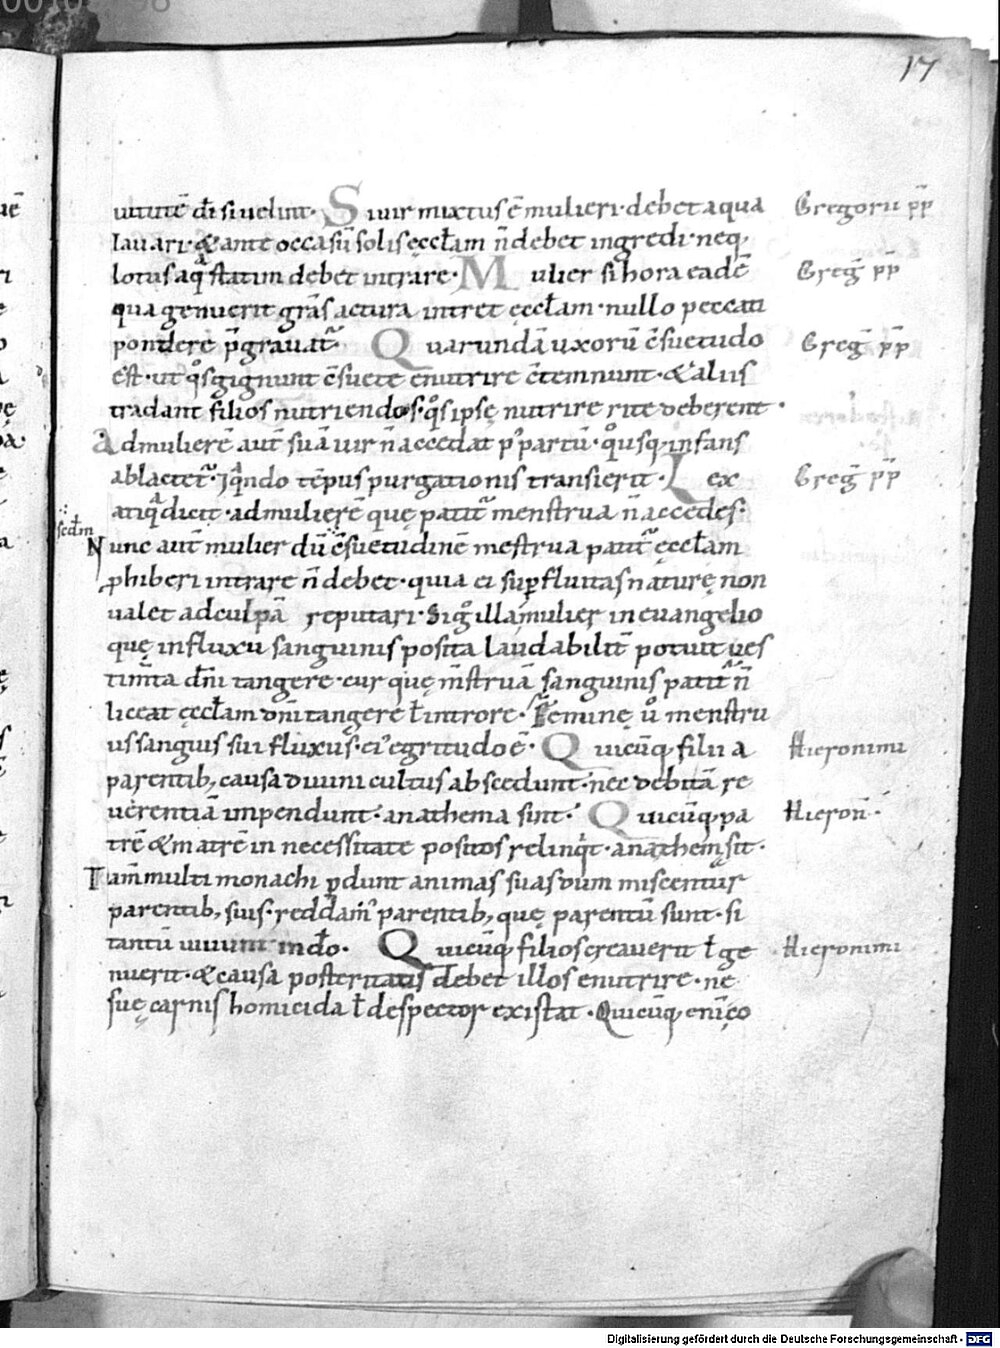 17
uitutē dī si uelint. Si uir mixtus ē mulieri. debet aqua Gregorii pp̄
lauari. & ante occasū solis ęccƚam n̄ debet ingredi. neq;
lotus aqᵃ statim debet intrare. Mulier si hora eadē Greḡ pp̄
qua genuerit grās actura intret ęccƚam. nullo peccati
pondere p̄grauat᷑. Quarundā uxorū c̄suetudo Greḡ pp̄
est. ut qͦs gignunt c̄suete enutrire c̄temnunt. & aliis
tradant filios nutriendos. qͦs ipsę nutrire rite deberent.
Ad mulierē aut̄ suā uir n̄ accedat p᷒ partū. qͦusq; infans
ablactet᷑. ⁊ qᵃndo tēpus purgationis transierit. Lex Greḡ pp̄
atiqᵃ dicit. ad mulierē quę patit᷑ menstrua n̄ accedes:
scdm̄
Nunc aut̄ mulier dū c̄suetudinē mēstrua patit᷑ ęccƚam
ꝓhiberi intrare n̄ debet. quia ei suꝑfluitas naturę non
ualet ad culpā reputari. Si gͦ illa mulier in euangelio
quę in fluxu sanguinis posita laudabilit̄ potuit ues
tim̄ta dn̄i tangere. cur quę m̄struā sanguinis patit᷑ n̄
liceat ęccƚam dn̄i tangere ƚ introre. Feminę uͦ menstru
us sanguis sui fluxus. ei᷒ egritudo ē. Quicūq; filii a Hieronimi
parentib; causa diuini cultus abscedunt. nec debitā re
uerentiā impendunt. anathema sint. Quicūq; pa Hieron̄.
trē & matrē in necessitate positos relinqͥt. anathem̄ sit.
Tam̄ multi monachi ꝑdunt animas suas dum miscentur
parentib; suis. reddam᷒ parentib; quę parentū sunt. si
tantū uiuunt in dō. Quicūq; filios creauerit ƚ ge Hieronimi
nuerit. & causa posteritatis debet illos enutrire. ne
suę carnis homicida ƚ despector existat. Quicūq; eni᷒ co
Digitalisierung gefördert durch die Deutsche Forschungsgemeinschaft - DFG